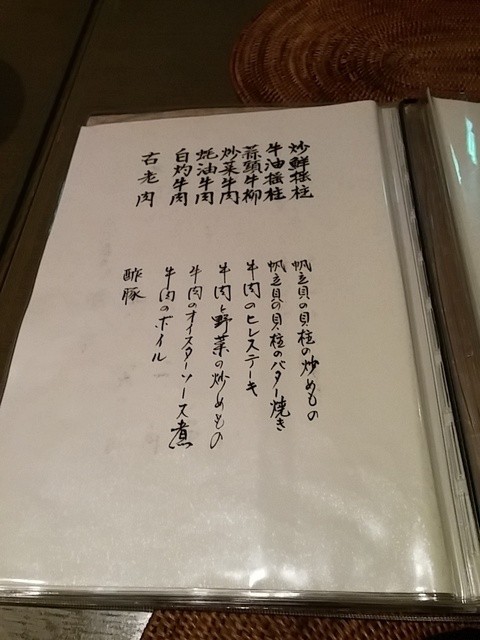 炒鮮瑤柱
牛油瑤柱
蒜頭牛柳
炒菜牛肉
蚝油牛肉
白灼牛肉
古老肉
帆立貝の貝柱の炒めもの
帆立貝の貝柱のバター焼き
牛肉のヒレステーキ
牛肉と野菜の炒めもの
牛肉のオイスターソース煮
牛肉のボイル
酢豚